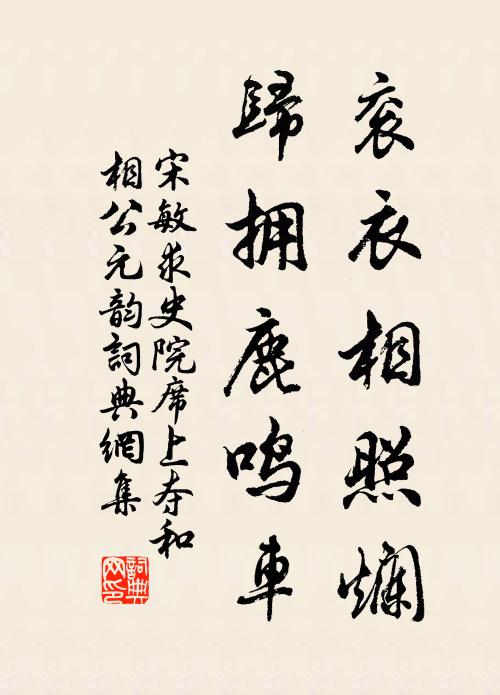 衮衣相照爛
歸拥鹿鸣車
宋敏求史院席上夲和
相公元韵詞典網集
詞典网印